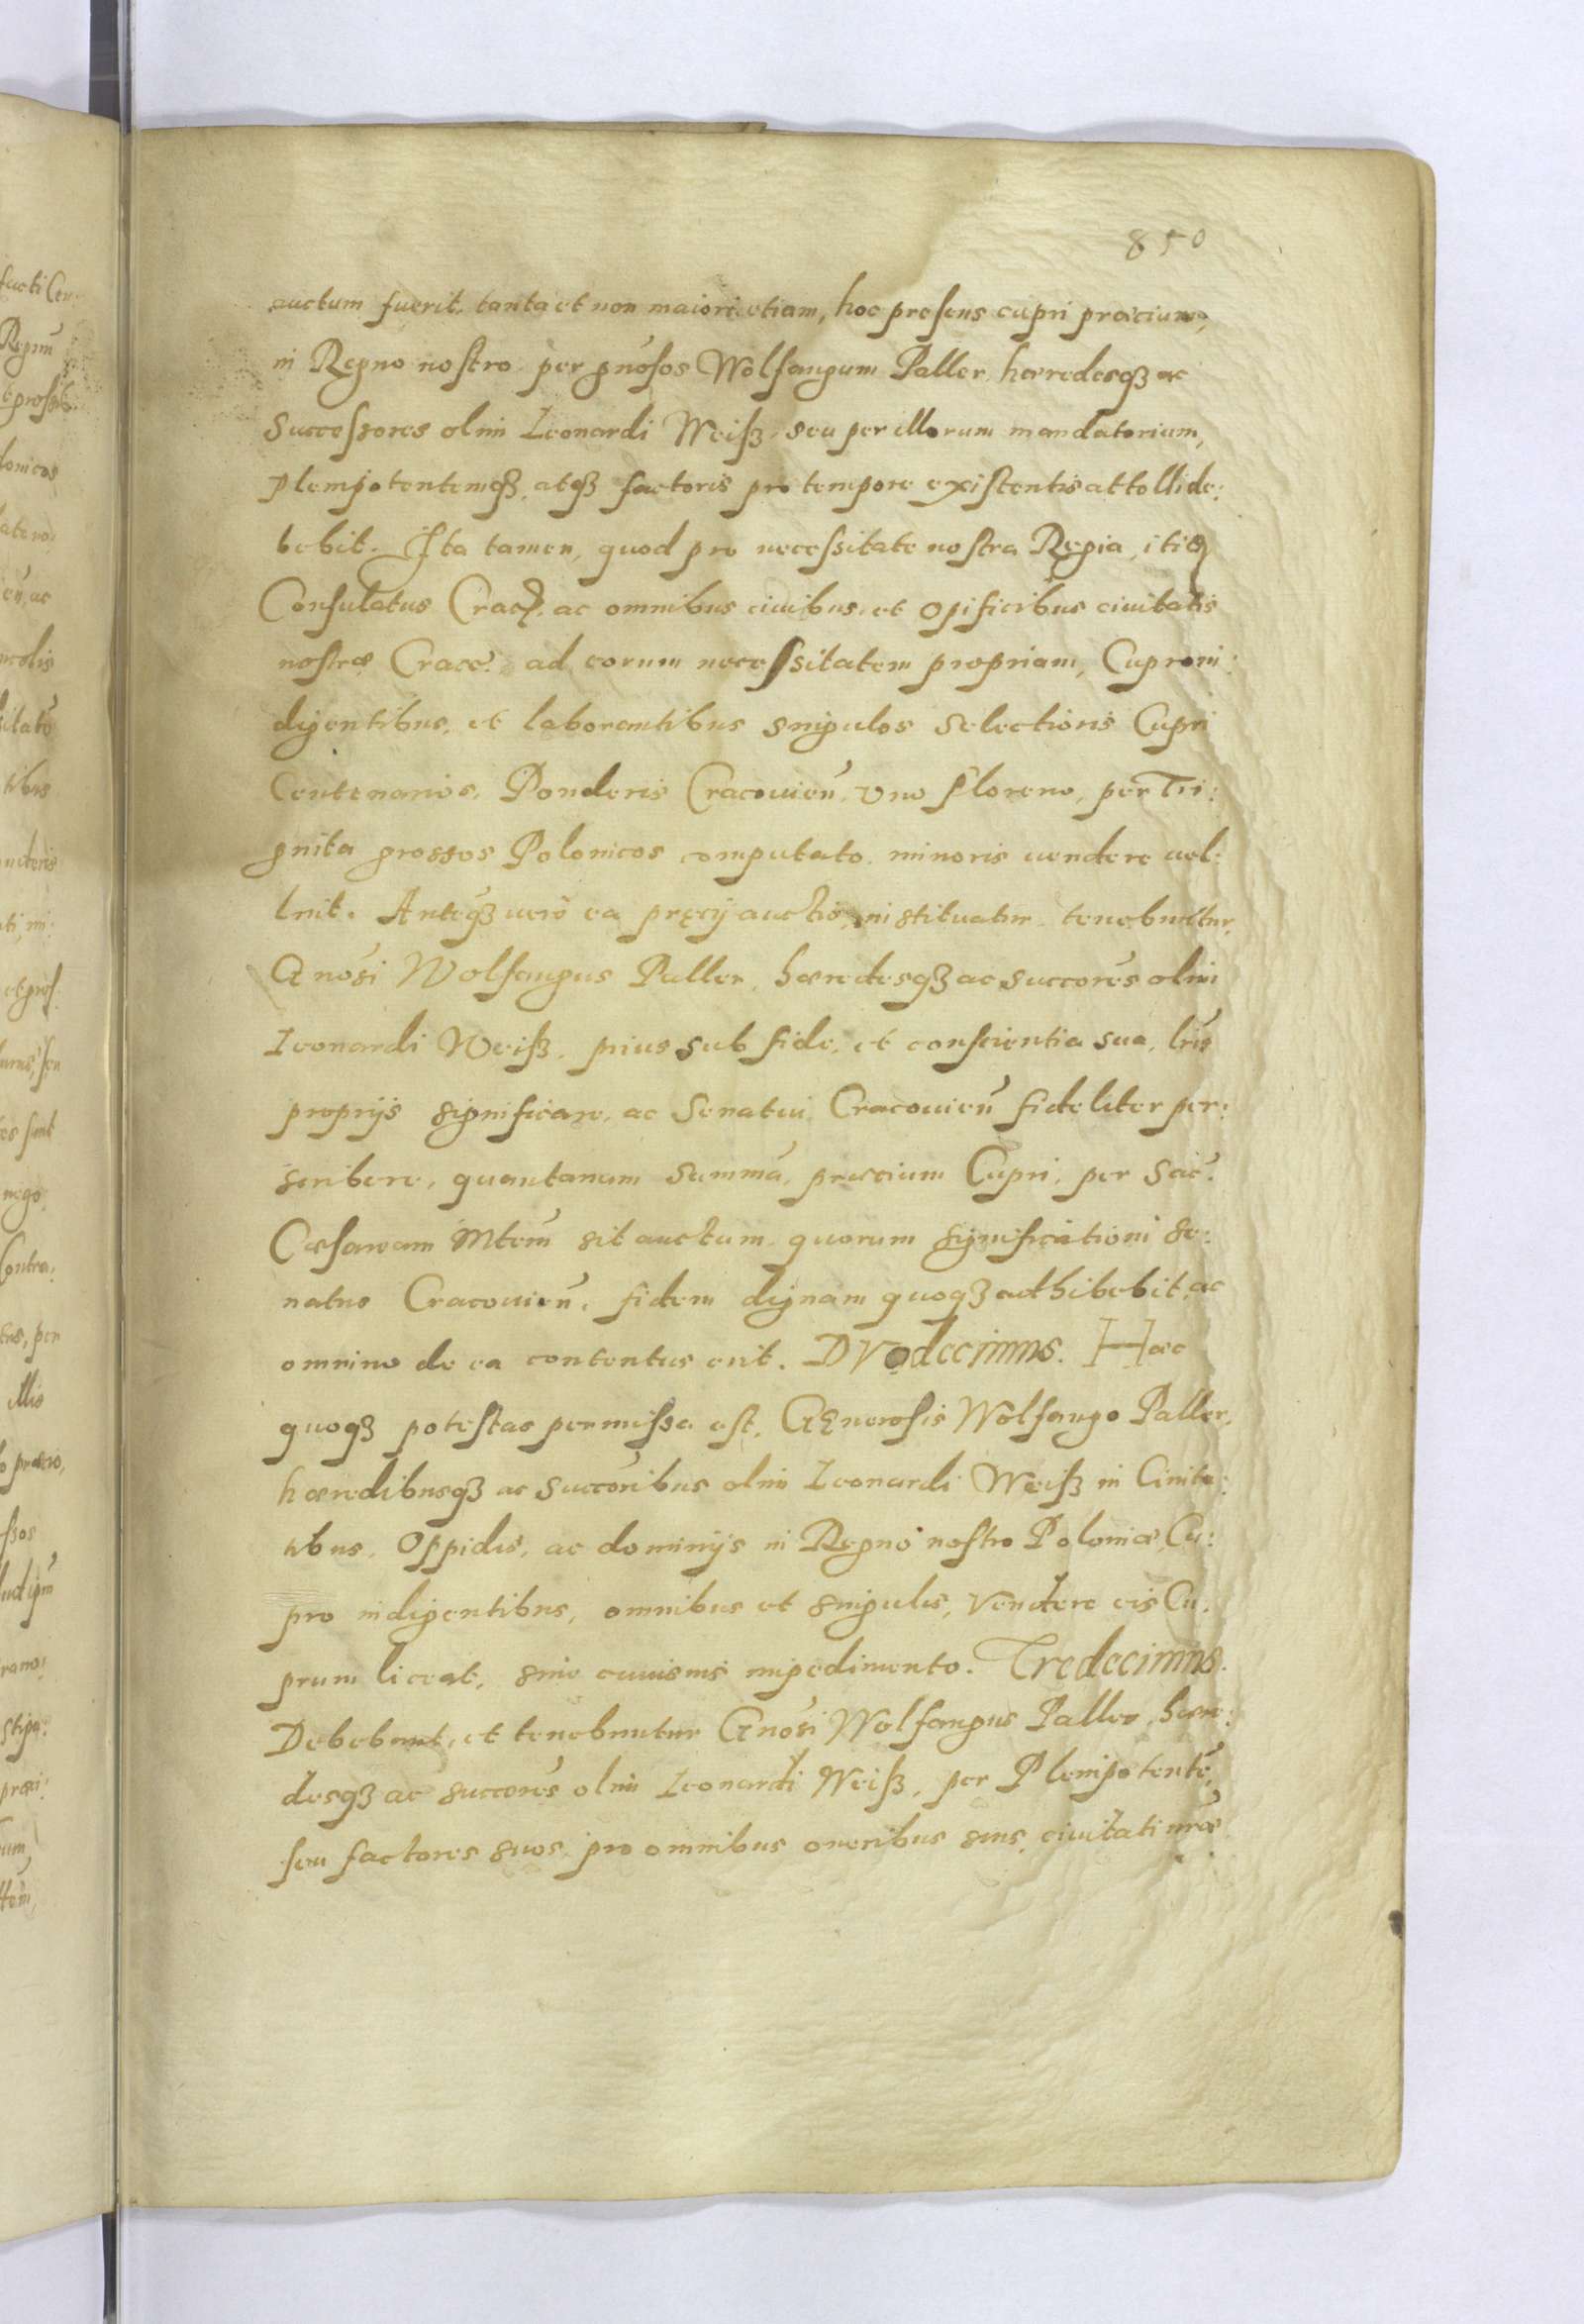 850
auctum fuerit tanta et non maiori etiam, hoc presens cupri praecium,
in Regno nostro per gnosos Wolfangum Paller haeredesqȝ ac
Successores olim Leonardi Weisz seu per illorum mandatorium,
Plenipotentemqȝ, atqȝ factoris pro tempore existentis attolli de:
bebit. Ita tamen, quod pro necessitate nostra Regia,
Consulatus Crac. ac omnibus civibus et opificibus civitatis
nostrae Cracc. ad eorum necessitatem propriam, Cupro in:
digentibus, et laborantibus singulos Selectioris Cupri
Centenarios, Ponderis Cracovien, Uno floreno, per Tri:
ginta grossos Polonicos computato minoris vendere vel:
lint. Anteqȝ vero ea pręcij auctio, instituatur tenebuntur,
Gnosi Wolfangus Paller, haeredesqȝ ac succores olim
Leonardi Weisz, prius sub fide, et conscientia sua, lris
proprijs significare, ac Senatui Cracovien fideliter per:
scribere, quantanam summa, praecium Cupri, per Sac.
Caesaream Mtem sit auctum quorum significationi se:
natus Cracovien, fidem dignam quoqȝ adhibebit, ac
omnino de ea contentus erit. DVodecimus. Haec
quoqȝ potestas permissa est, GEnerosis Wolfango Paller,
haeredibusqȝ ac succoribus olim Leonardi Weisz in Civita:
tibus, Oppidis, ac dominijs in Regno nostro Poloniae, Cu:
pro indigentibus, omnibus et singulis, Vendere eis Cu:
prum liceat, sine cuiusvis impedimento. Tredecimus.
Debebunt, et tenebuntur Gnosi Wolfangus Paller, haere:
desqȝ ac succores olim Leonardi Weisz, per Plenipotente,
seu factores suos, pro omnibus oneribus suis, civitati nrae